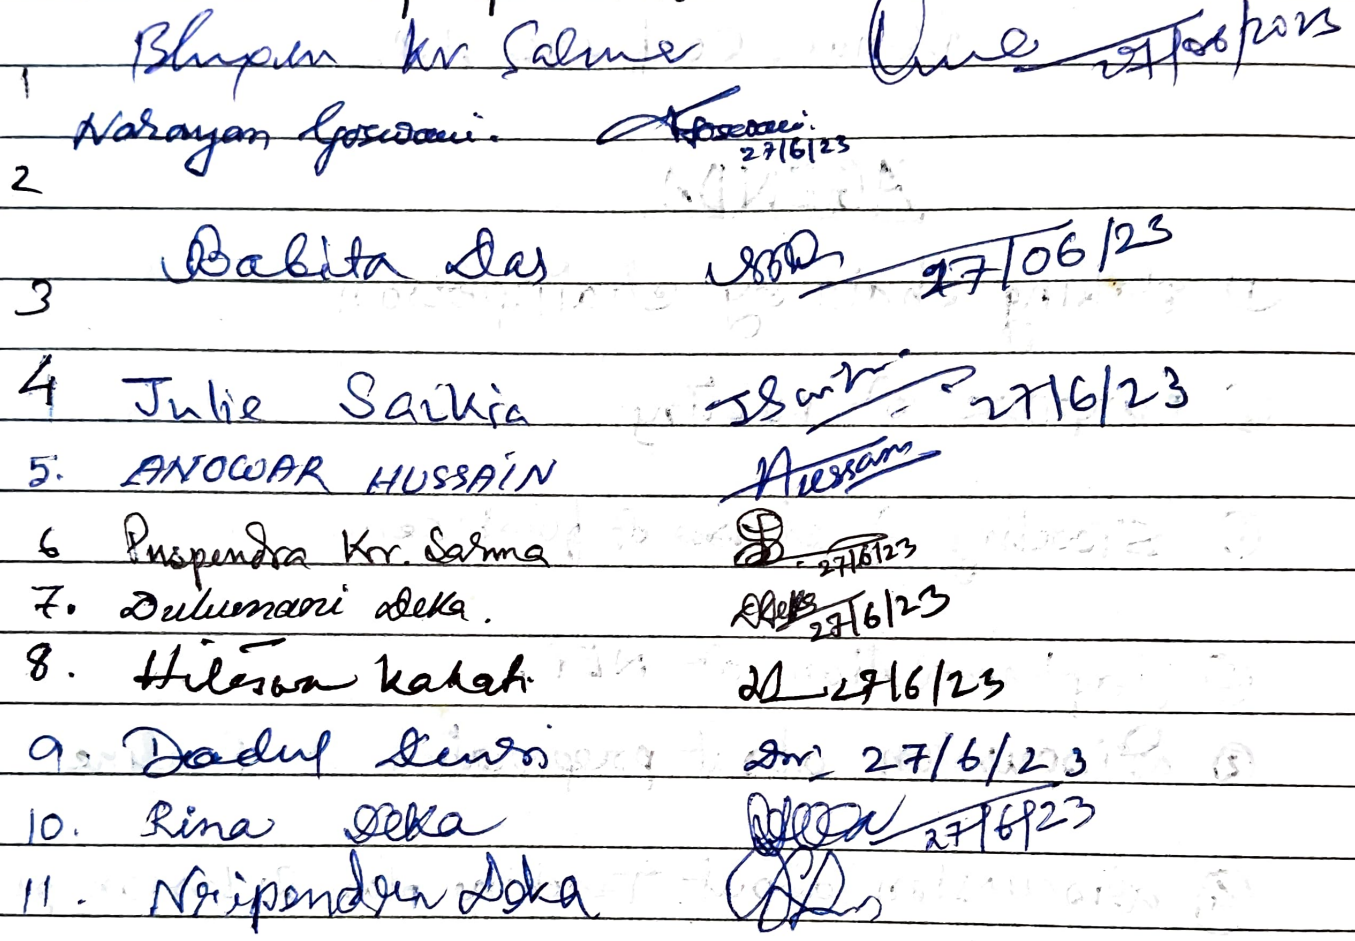 1 Bhupen Kr Sarma 27/06/2023
2 Narayan Goswami. Goswami. 27/6/23
3 Babita Das 27/06/23
4 Julie Saikia JSaikia 27/6/23
5. ANOWAR HUSSAIN Hussain
6 Puspendra Kr. Sarma 27/6/23
7. Dulumani Deka. Deka 27/6/23
8. Kakati 27/6/23
9. Dadul 27/6/23
10. Rina Deka Deka 27/6/23
11. Nripendra Deka